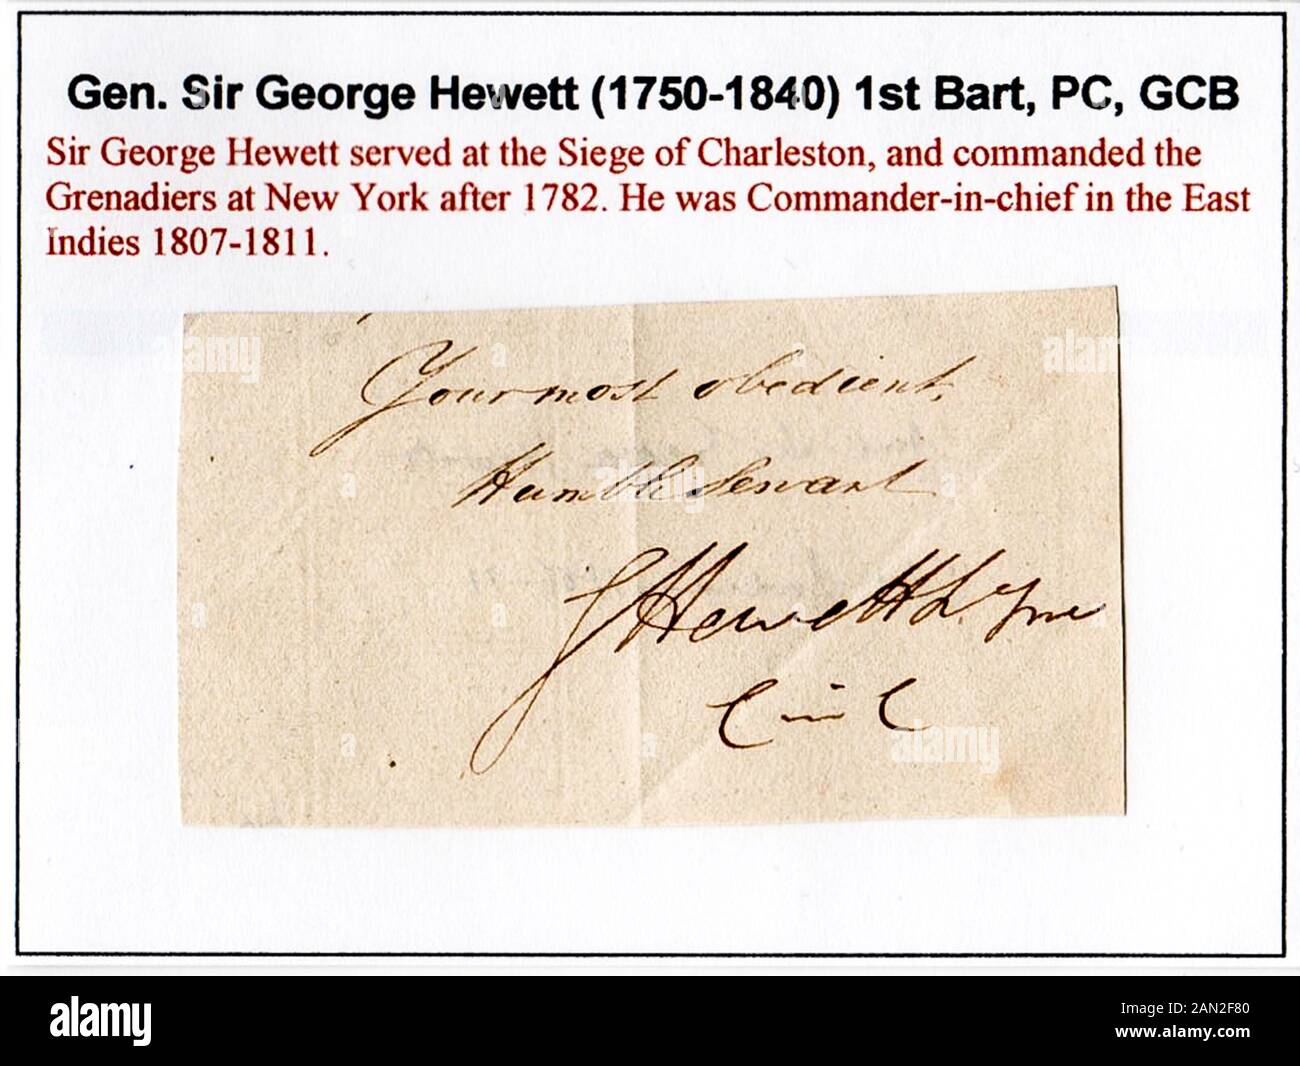 Gen. Sir George Hewett (1750-1840) 1st Bart, PC, GCB
Sir George Hewett served at the Siege of Charleston, and commanded the
Grenadiers at New York after 1782. He was Commander-in-chief in the East
Indies 1807-1811.
Your most obedient,
Humble Servant
G Hewett L.
C in C
alamy
Image ID: 2AN2F80
www.alamy.com